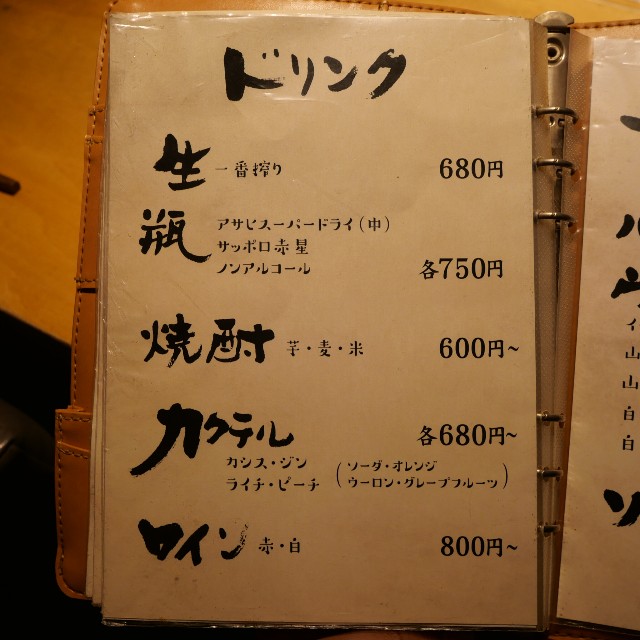 ドリンク
生 一番搾り 680円
瓶 アサヒスーパードライ(中)
サッポロ赤星
ノンアルコール 各750円
焼酎 芋・麦・米 600円~
カクテル 各680円~
カシス・ジン (ソーダ・オレンジ
ライチ・ピーチ ウーロン・グレープフルーツ)
ワイン 赤・白 800円~
ハ
イ
山
山
白
白
ソ